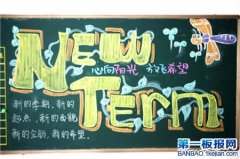 New
心向阳光 放飞希望
Term
新的学期,新的
起点,新的面貌
新的全貌,我的希望。
第一板报网
BANBAO.INNEWS.COM